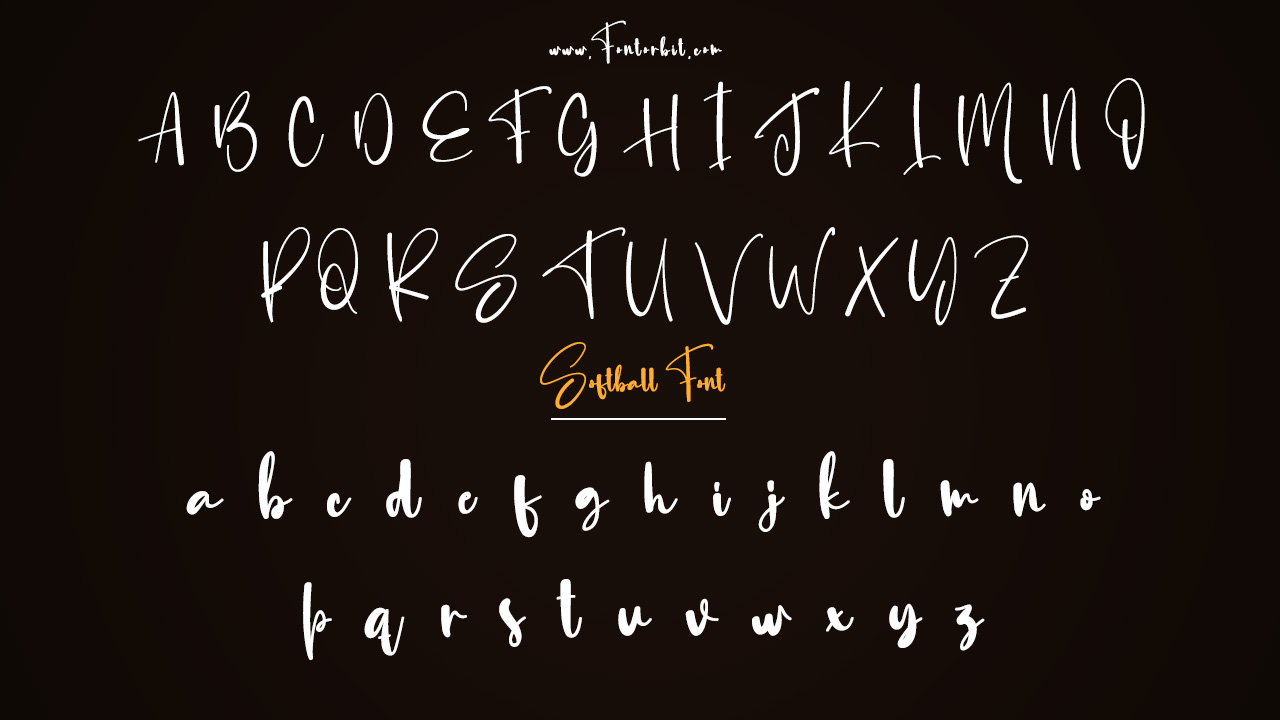 www.Fontorbit.com
A B C D E F G H I J K L M N O
P Q R S T U V W X Y Z
Softball Font
a b c d e f g h i j k l m n o
p q r s t u v w x y z